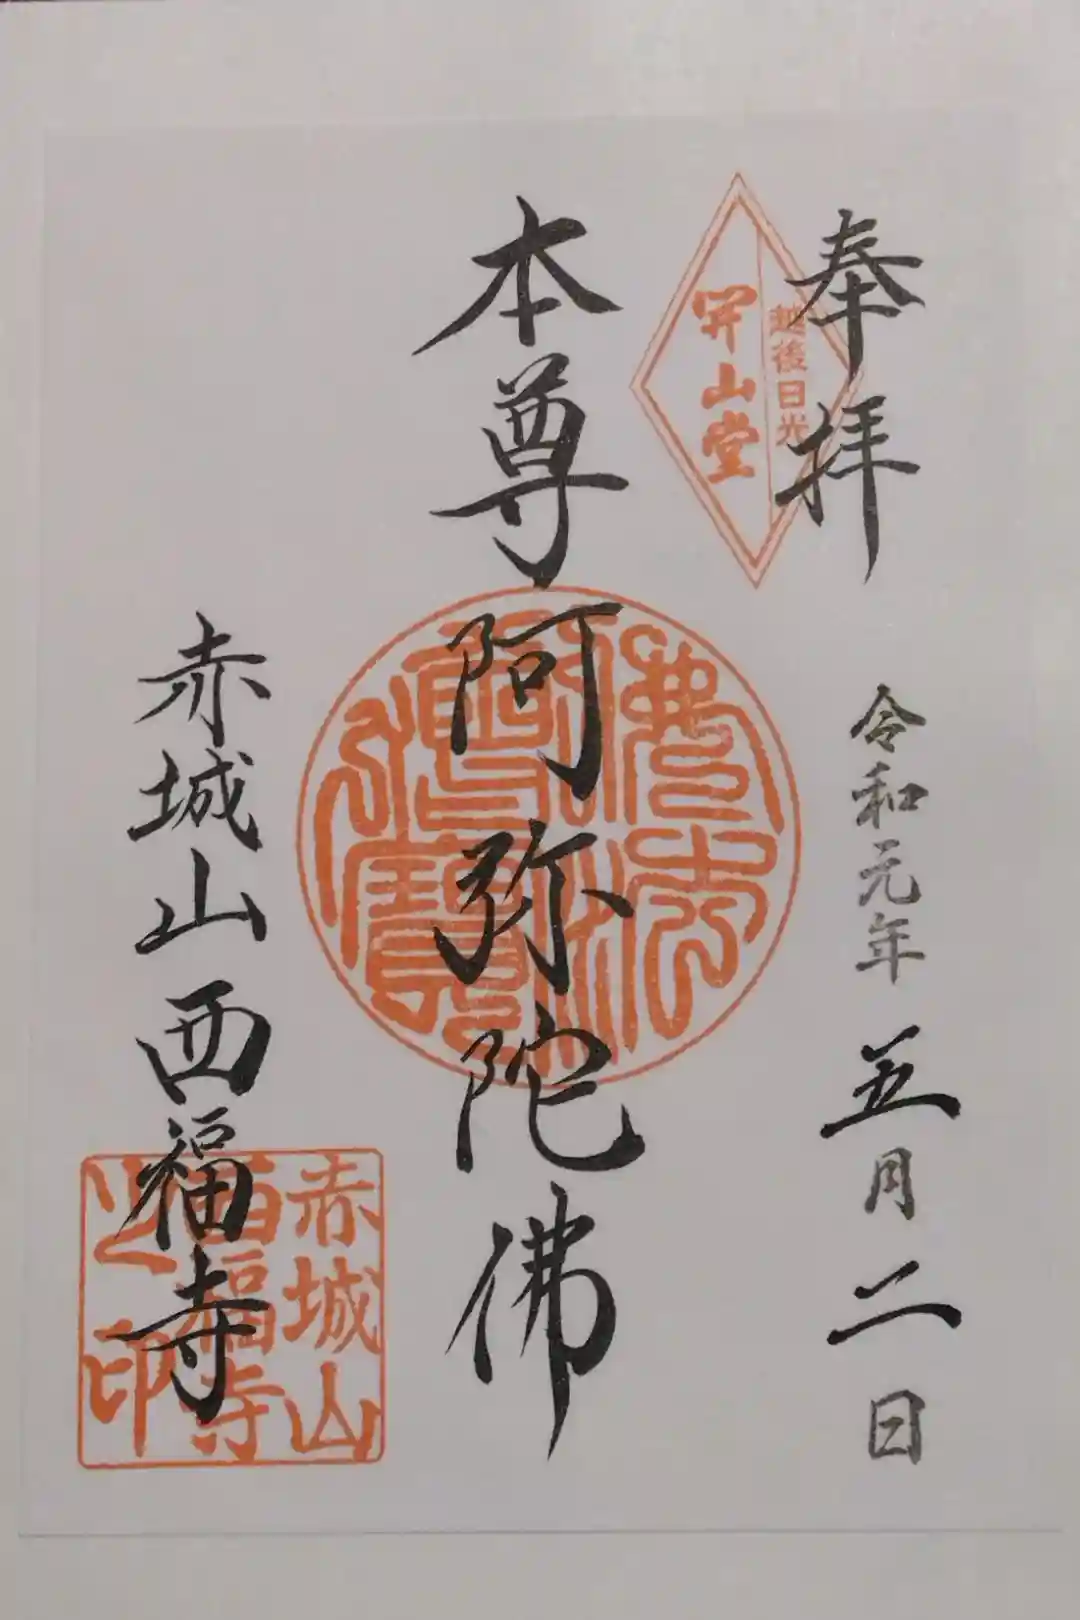 奉拝
令和元年五月二日
越後日光
開山堂
本尊阿弥陀佛
佛法僧寶
赤城山西福寺
赤城山
西福寺
之印